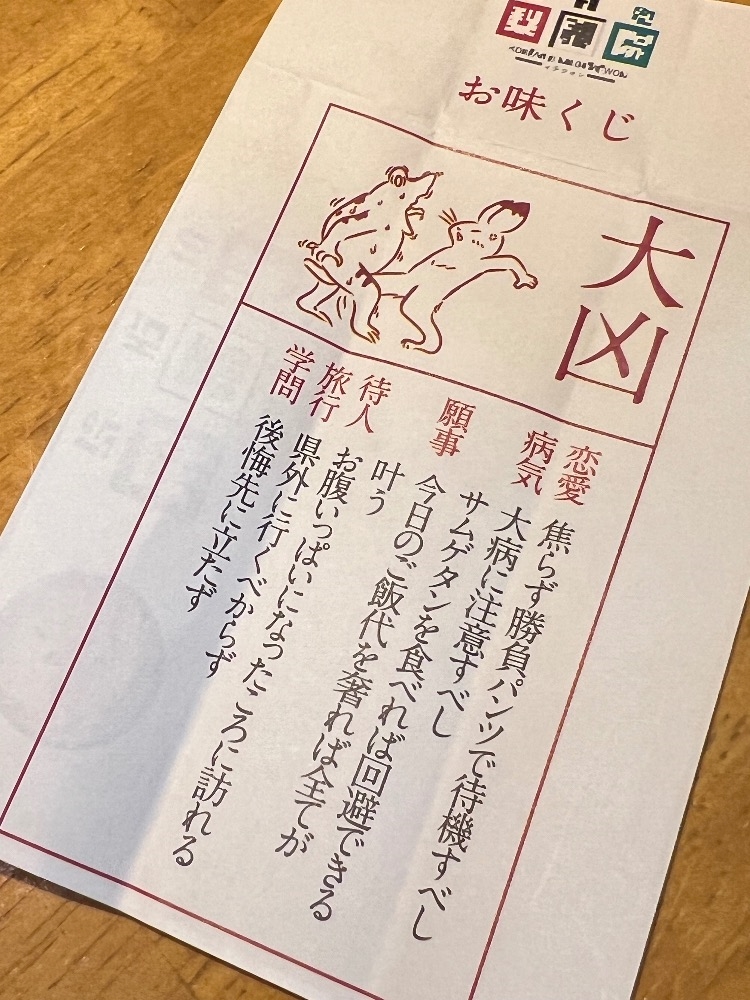 お味くじ
大凶
恋愛 焦らず勝負パンツで待機すべし
病気 大病に注意すべし
サムゲタンを食べれば回避できる
願事 今日のご飯代を奢れば全てが
叶う
待人 お腹いっぱいになったころに訪れる
旅行 県外に行くべからず
学問 後悔先に立たず